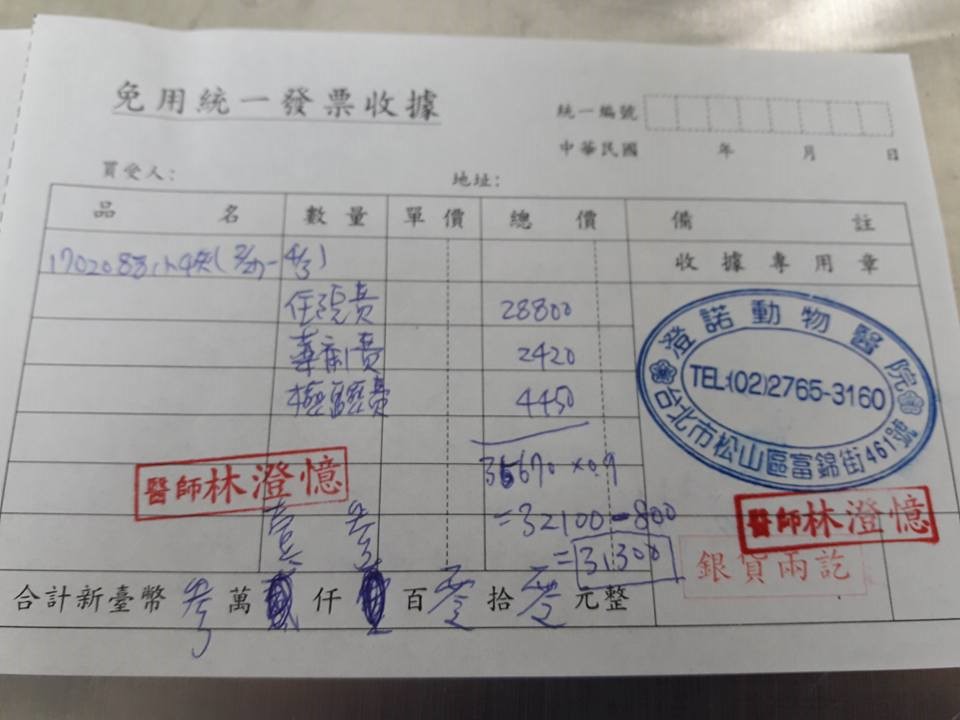 免用統一發票收據
統一編號
中華民國 年 月 日
買受人: 地址:
品名 數量 單價 總價 備註
收據專用章
住院費 28800
藥劑費 2420
檢驗費 4450
35670 ×0.9
=32100-800
=31300
澄諾動物醫院
TEL:(02)2765-3160
台北市松山區富錦街461號
醫師林澄憶
醫師林澄憶
銀貨兩訖
壹 參
合計新臺幣 參 萬 仟 百 零 拾 零 元整